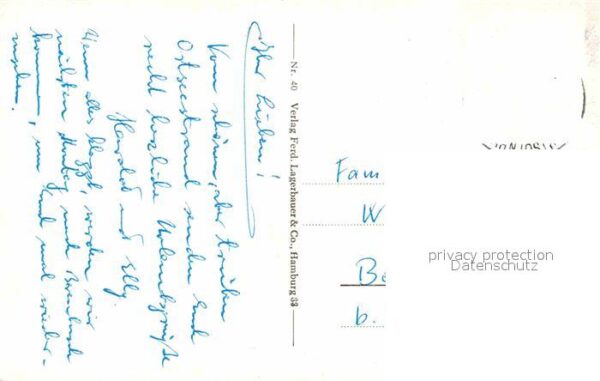 Ihr Lieben!
Vom schönen, aber trüben
Ostseestrand senden Euch
recht herzliche Urlaubsgrüße
Harald und Elly.
Wenn alles klappt, werden wir
nächsten und
kommen, um Euch mal wieder-
zusehen.
Nr. 40 Verlag Ferd. Lagerbauer & Co., Hamburg 33
Fam
W
Be
b.
privacy protection
Datenschutz